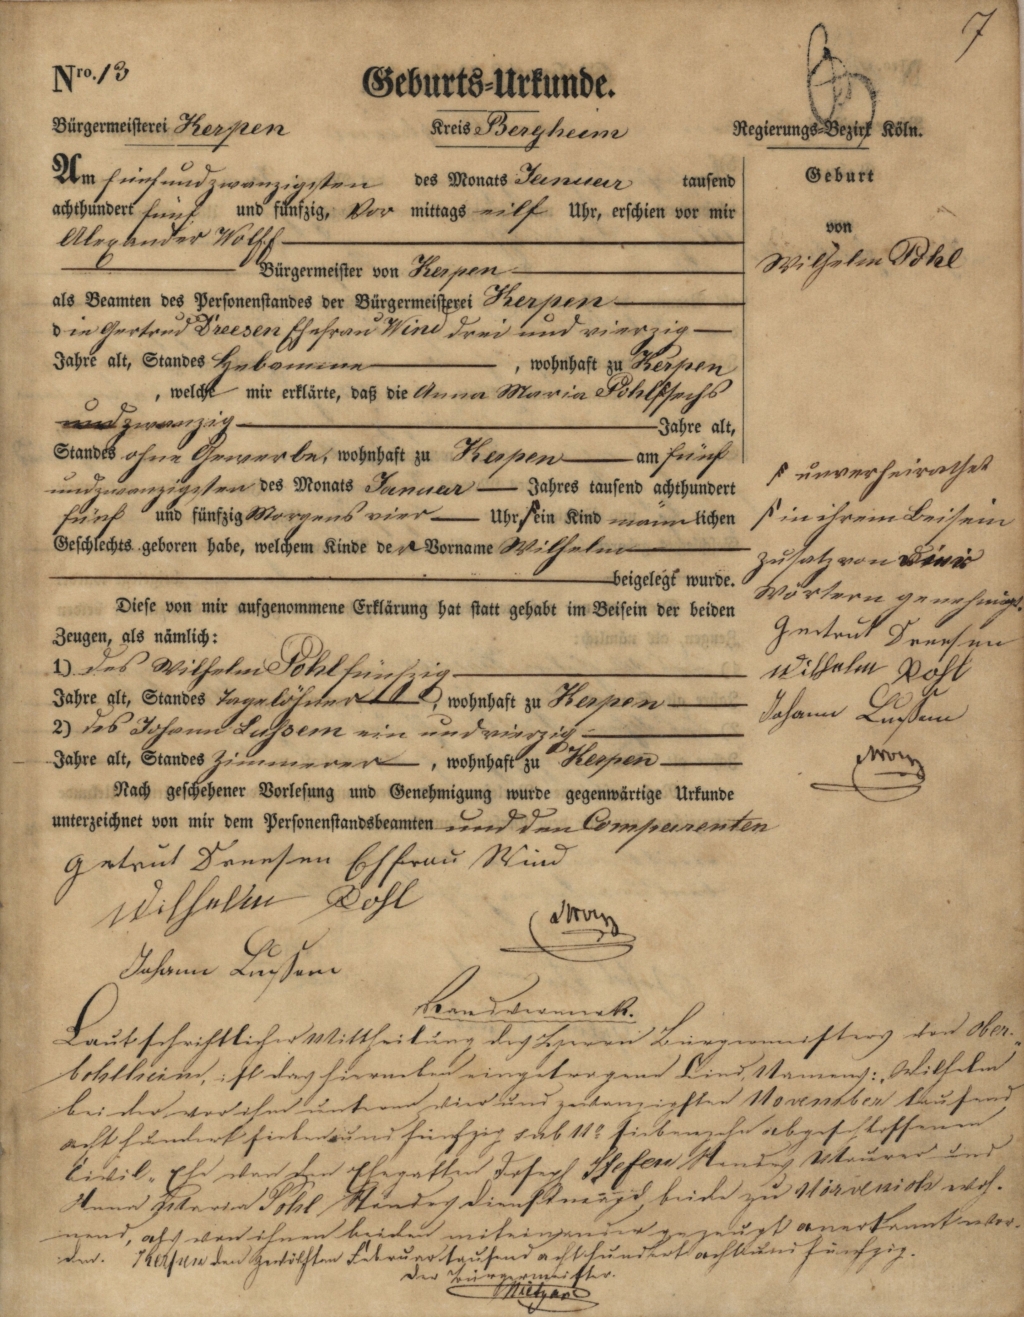 7
Nro. 13
Geburts-Urkunde.
Bürgermeisterei Kerpen Kreis Bergheim Regierungs-Bezirk Köln.
Am fünfundzwanzigsten des Monats Januar tausend
achthundert fünf und fünfzig, Vor mittags eilf Uhr, erschien vor mir
Alexander Wolff
Bürgermeister von Kerpen
als Beamten des Personenstandes der Bürgermeisterei Kerpen
die Gertrud Dreesen Ehefrau Wind drei und vierzig
Jahre alt, Standes Hebamme, wohnhaft zu Kerpen
, welche mir erklärte, daß die Anna Maria Pohl sechs
undzwanzig Jahre alt,
Standes ohne Gewerbe, wohnhaft zu Kerpen am fünf
undzwanzigsten des Monats Januar Jahres tausend achthundert
fünf und fünfzig Morgens vier Uhr, ein Kind männlichen
Geschlechts geboren habe, welchem Kinde der Vorname Wilhelm
beigelegt wurde.
Diese von mir aufgenommene Erklärung hat statt gehabt im Beisein der beiden
Zeugen, als nämlich:
1) des Wilhelm Pohl fünfzig
Jahre alt, Standes Tagelöhner, wohnhaft zu Kerpen
2) des Johann Lussem ein und vierzig
Jahre alt, Standes Zimmerer, wohnhaft zu Kerpen
Nach geschehener Vorlesung und Genehmigung wurde gegenwärtige Urkunde
unterzeichnet von mir dem Personenstandsbeamten und den Comparenten
Geburt
von
Wilhelm Pohl
unverheirathet
in ihrem Beisein
Zusatz von
Wörtern genehmigt.
Gertrut Dreesen
Wilhelm Pohl
Johann Lussem
Gertrut Dreesen Ehfrau Wind
Wilhelm Pohl
Johann Lussem
Randvermerk.
Laut schriftlicher Mittheilung des Herrn Bürgermeisters von Ober-
bohlheim, ist das hierneben eingetragene Kind, Namens: Wilhelm
bei der vor ihm unterm vier und zwanzigsten November tausend
acht hundert sieben und fünfzig sub No siebenzehn abgeschlossenen
Civil-Ehe von den Ehegatten Joseph Standes Maurer und
Anna Maria Pohl Standes Dienstmagd beide zu Nörvenich woh-
nend, als von ihnen beiden miteinander gezeugt anerkannt wor-
den. Kerpen den zwölften Februar tausend acht hundert acht und fünfzig.
Der Bürgermeister.